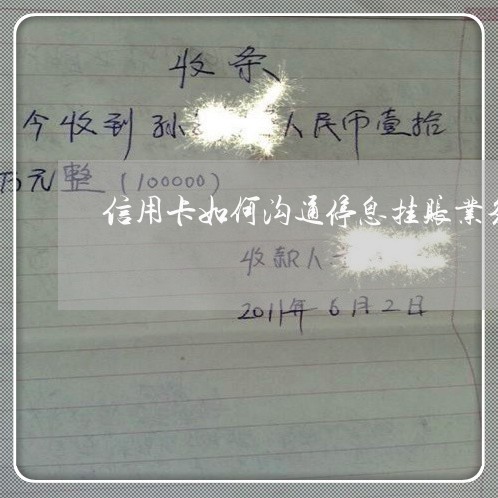 收条
今收到孙 人民币壹拾
万元整(100000)
信用卡如何沟通停息挂账業
收款人
2011年6月2日